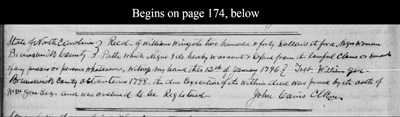 Begins on page 174, below
State of North Carolina } Recd. of William Wingate two hundred & forty Dollars it for a Negro Woman
Brunswick County } Patt which Negro I do hereby warrant & defend from the lawful Claims or demand
of any person or persons whatsoever, witness my hand this 12th of January 1796 } Test. William Gause
Brunswick County Octr Term 1798. the due Execution of the within deed was proved by the oath of
Wm Gause Esqr. and was ordered to be Registered John Conis Clk